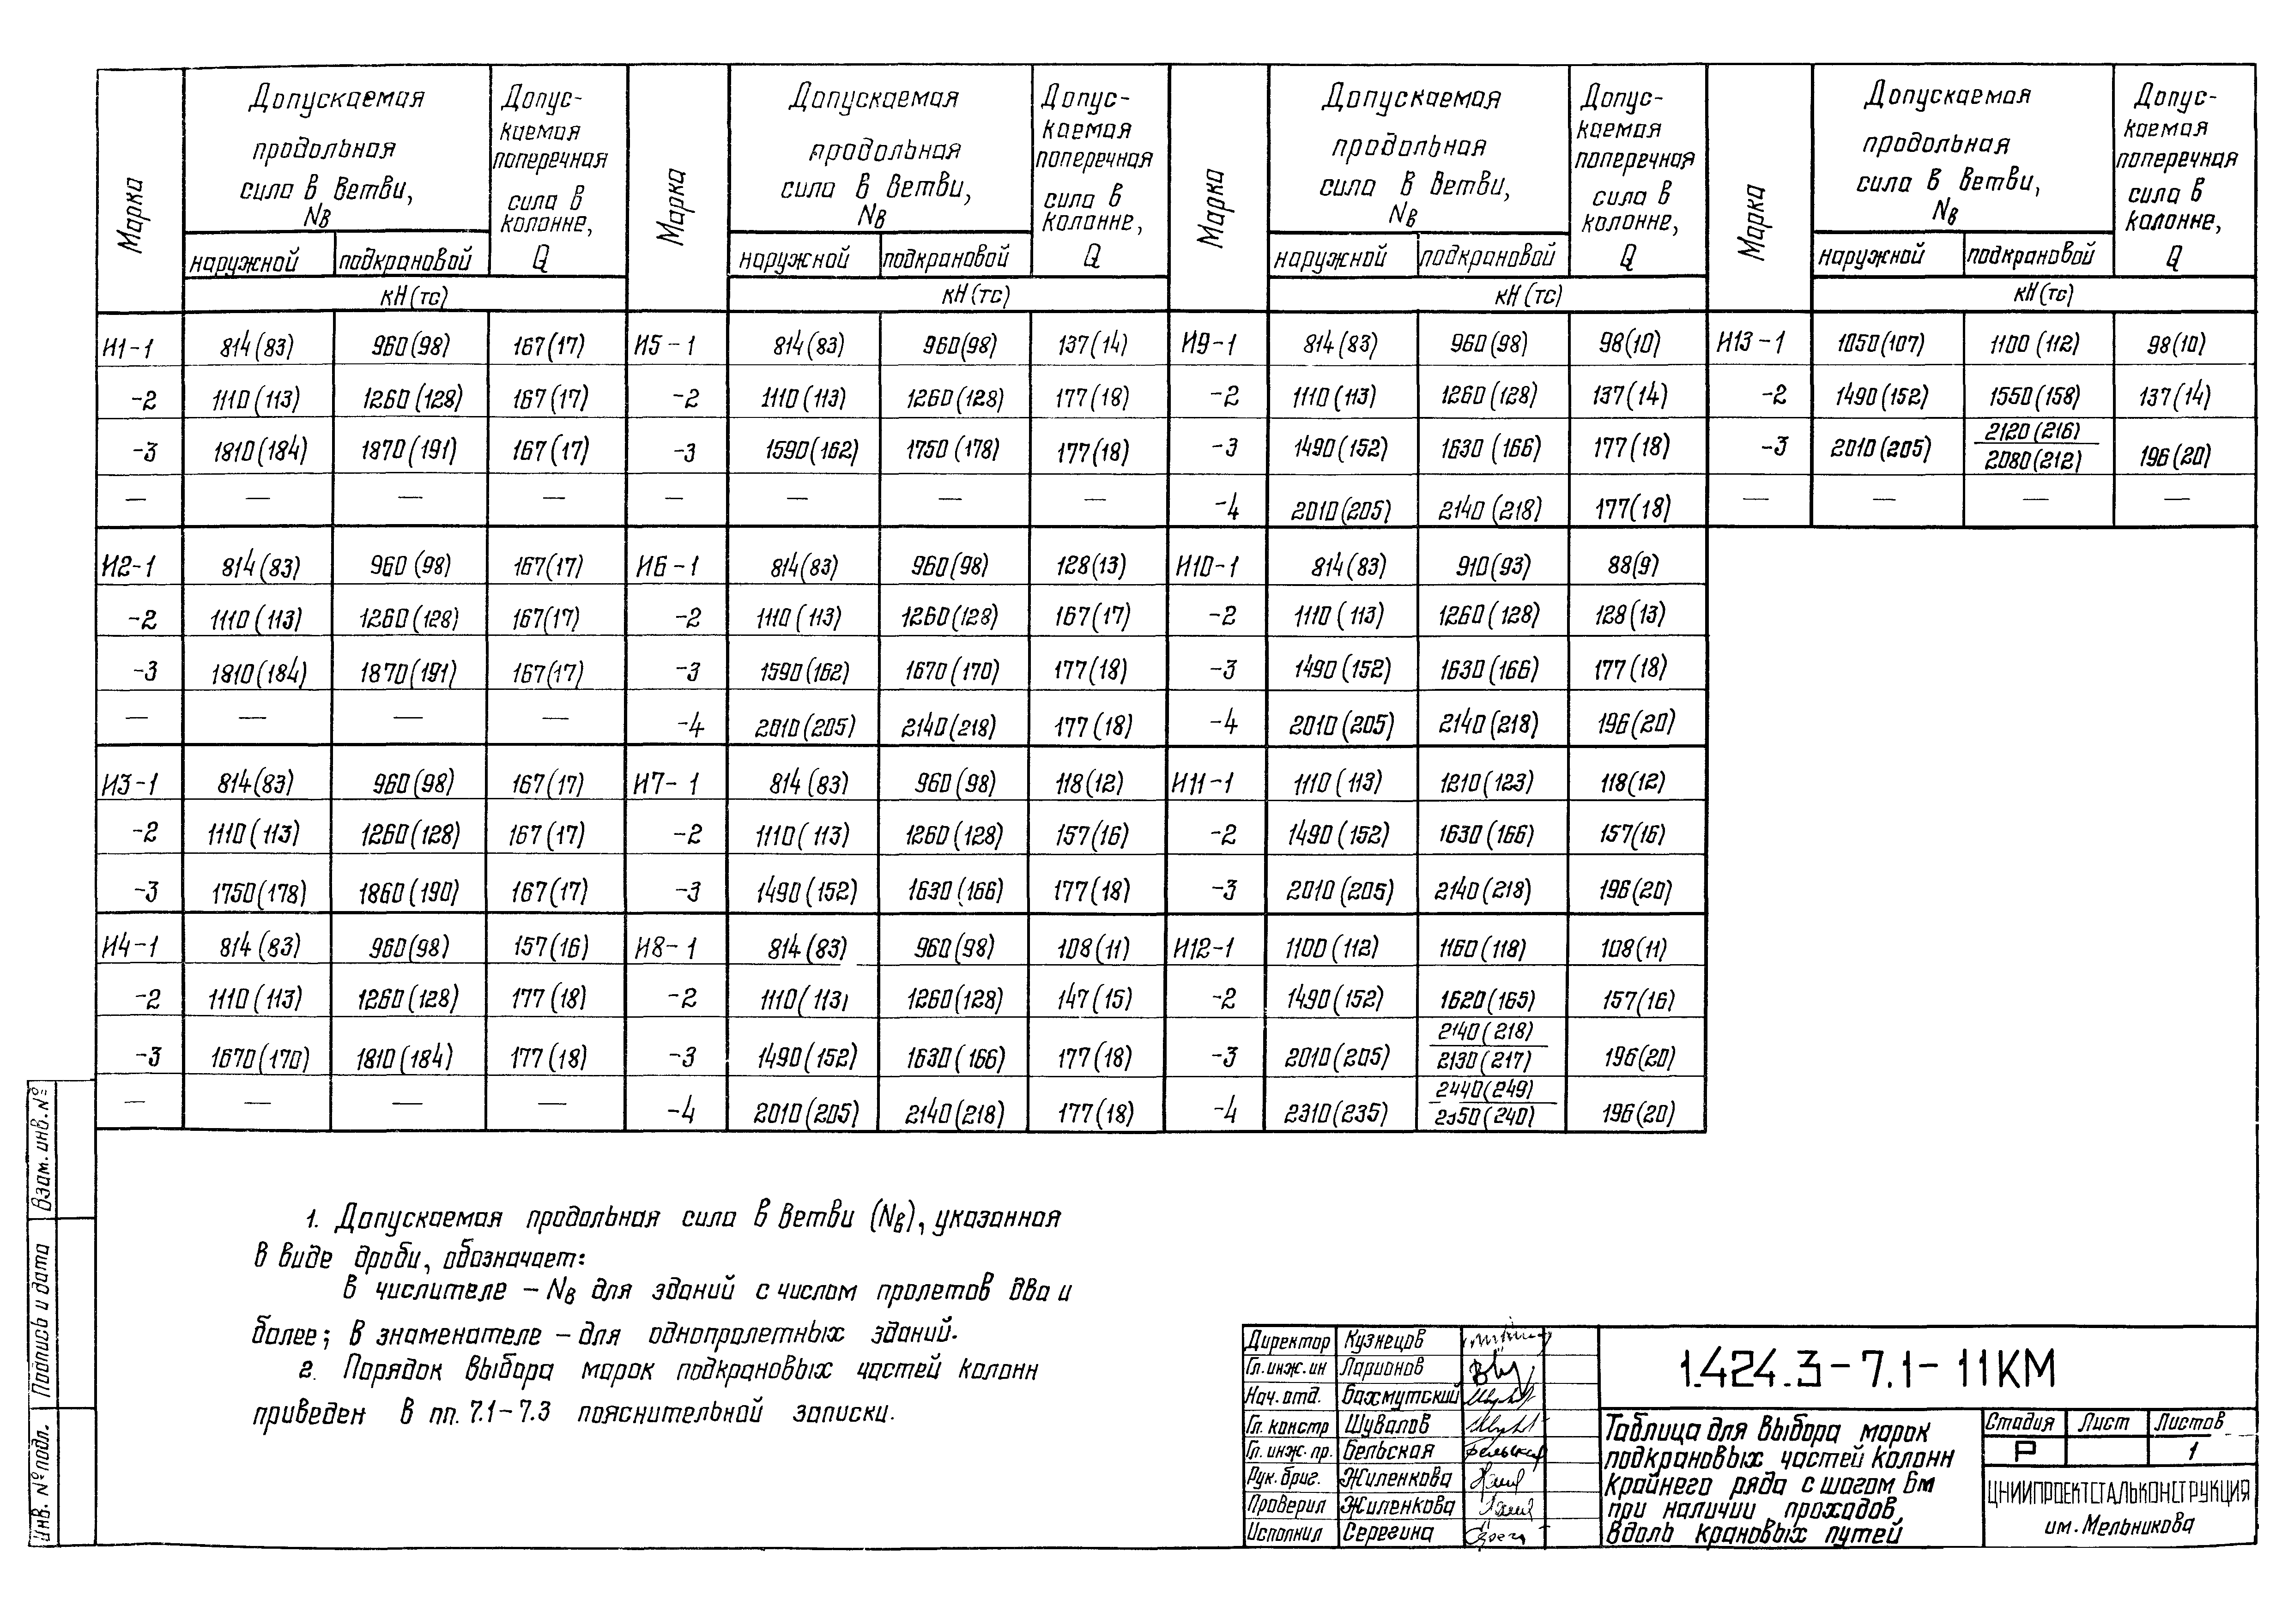 Марка
Допускаемая продольная сила в ветви, Nв
Допускаемая поперечная сила в колонне, Q
наружной подкрановой
кН(тс)
И1-1 814(83) 960(98) 167(17)
-2 1110(113) 1260(128) 167(17)
-3 1810(184) 1870(191) 167(17)
— — — —
И2-1 814(83) 960(98) 167(17)
-2 1110(113) 1260(128) 167(17)
-3 1810(184) 1870(191) 167(17)
— — — —
И3-1 814(83) 960(98) 167(17)
-2 1110(113) 1260(128) 167(17)
-3 1750(178) 1860(190) 167(17)
И4-1 814(83) 960(98) 157(16)
-2 1110(113) 1260(128) 177(18)
-3 1670(170) 1810(184) 177(18)
— — — —
Марка
Допускаемая продольная сила в ветви, Nв
Допускаемая поперечная сила в колонне, Q
наружной подкрановой
кН(тс)
И5-1 814(83) 960(98) 137(14)
-2 1110(113) 1260(128) 177(18)
-3 1590(162) 1750(178) 177(18)
— — — —
И6-1 814(83) 960(98) 128(13)
-2 1110(113) 1260(128) 167(17)
-3 1590(162) 1670(170) 177(18)
-4 2010(205) 2140(218) 177(18)
И7-1 814(83) 960(98) 118(12)
-2 1110(113) 1260(128) 157(16)
-3 1490(152) 1630(166) 177(18)
И8-1 814(83) 960(98) 108(11)
-2 1110(113) 1260(128) 147(15)
-3 1490(152) 1630(166) 177(18)
-4 2010(205) 2140(218) 177(18)
Марка
Допускаемая продольная сила в ветви, Nв
Допускаемая поперечная сила в колонне, Q
наружной подкрановой
кН(тс)
И9-1 814(83) 960(98) 98(10)
-2 1110(113) 1260(128) 137(14)
-3 1490(152) 1630(166) 177(18)
-4 2010(205) 2140(218) 177(18)
И10-1 814(83) 910(93) 88(9)
-2 1110(113) 1260(128) 128(13)
-3 1490(152) 1630(166) 177(18)
-4 2010(205) 2140(218) 196(20)
И11-1 1110(113) 1210(123) 118(12)
-2 1490(152) 1630(166) 157(16)
-3 2010(205) 2140(218) 196(20)
И12-1 1100(112) 1160(118) 108(11)
-2 1490(152) 1620(165) 157(16)
-3 2010(205) 2140(218)/2130(217) 196(20)
-4 2310(235) 2440(249)/2350(240) 196(20)
Марка
Допускаемая продольная сила в ветви, Nв
Допускаемая поперечная сила в колонне, Q
наружной подкрановой
кН(тс)
И13-1 1050(107) 1100(112) 98(10)
-2 1490(152) 1550(158) 137(14)
-3 2010(205) 2120(216)/2080(212) 196(20)
— — — —
1. Допускаемая продольная сила в ветви (Nв), указанная
в виде дроби, обозначает:
в числителе - Nв для зданий с числом пролетов два и
более; в знаменателе - для однопролетных зданий.
2. Порядок выбора марок подкрановых частей колонн
приведен в пп. 7.1-7.3 пояснительной записки.
Взам. инв. №
Подпись и дата
Инв. № подл.
Директор Кузнецов
Гл. инж. ин Ларионов
Нач. отд. Бахмутский
Гл. констр Шувалов
Гл. инж. пр. Бельская
Рук. бриг. Жиленкова
Проверил Жиленкова
Исполнил Серегина
1.424.3-7.1-11КМ
Таблица для выбора марок
подкрановых частей колонн
крайнего ряда с шагом 6м
при наличии проходов
вдоль крановых путей
Стадия Лист Листов
Р 1
ЦНИИПРОЕКТСТАЛЬКОНСТРУКЦИЯ
им. Мельникова